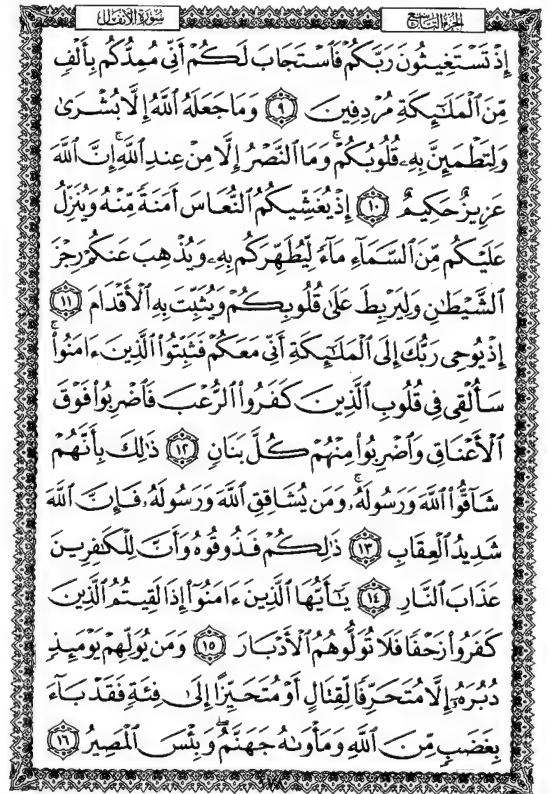 سورة الأنفال
الجزء التاسع
إِذْ تَسْتَغِيثُونَ رَبَّكُمْ فَٱسْتَجَابَ لَكُمْ أَنِّى مُمِدُّكُم بِأَلْفٍ
مِّنَ ٱلْمَلَٰٓئِكَةِ مُرْدِفِينَ ﴿٩﴾ وَمَا جَعَلَهُ ٱللَّهُ إِلَّا بُشْرَىٰ
وَلِتَطْمَئِنَّ بِهِۦ قُلُوبُكُمْ ۚ وَمَا ٱلنَّصْرُ إِلَّا مِنْ عِندِ ٱللَّهِ ۚ إِنَّ ٱللَّهَ
عَزِيزٌ حَكِيمٌ ﴿١٠﴾ إِذْ يُغَشِّيكُمُ ٱلنُّعَاسَ أَمَنَةً مِّنْهُ وَيُنَزِّلُ
عَلَيْكُم مِّنَ ٱلسَّمَآءِ مَآءً لِّيُطَهِّرَكُم بِهِۦ وَيُذْهِبَ عَنكُمْ رِجْزَ
ٱلشَّيْطَٰنِ وَلِيَرْبِطَ عَلَىٰ قُلُوبِكُمْ وَيُثَبِّتَ بِهِ ٱلْأَقْدَامَ ﴿١١﴾
إِذْ يُوحِى رَبُّكَ إِلَى ٱلْمَلَٰٓئِكَةِ أَنِّى مَعَكُمْ فَثَبِّتُوا۟ ٱلَّذِينَ ءَامَنُوا۟ ۚ
سَأُلْقِى فِى قُلُوبِ ٱلَّذِينَ كَفَرُوا۟ ٱلرُّعْبَ فَٱضْرِبُوا۟ فَوْقَ
ٱلْأَعْنَاقِ وَٱضْرِبُوا۟ مِنْهُمْ كُلَّ بَنَانٍ ﴿١٢﴾ ذَٰلِكَ بِأَنَّهُمْ
شَآقُّوا۟ ٱللَّهَ وَرَسُولَهُۥ ۚ وَمَن يُشَاقِقِ ٱللَّهَ وَرَسُولَهُۥ فَإِنَّ ٱللَّهَ
شَدِيدُ ٱلْعِقَابِ ﴿١٣﴾ ذَٰلِكُمْ فَذُوقُوهُ وَأَنَّ لِلْكَٰفِرِينَ
عَذَابَ ٱلنَّارِ ﴿١٤﴾ يَٰٓأَيُّهَا ٱلَّذِينَ ءَامَنُوٓا۟ إِذَا لَقِيتُمُ ٱلَّذِينَ
كَفَرُوا۟ زَحْفًا فَلَا تُوَلُّوهُمُ ٱلْأَدْبَارَ ﴿١٥﴾ وَمَن يُوَلِّهِمْ يَوْمَئِذٍ
دُبُرَهُۥٓ إِلَّا مُتَحَرِّفًا لِّقِتَالٍ أَوْ مُتَحَيِّزًا إِلَىٰ فِئَةٍ فَقَدْ بَآءَ
بِغَضَبٍ مِّنَ ٱللَّهِ وَمَأْوَىٰهُ جَهَنَّمُ ۖ وَبِئْسَ ٱلْمَصِيرُ ﴿١٦﴾